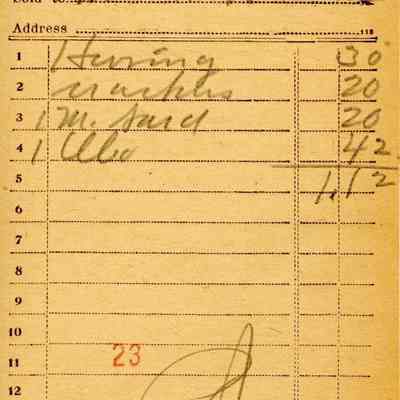 Sold to
Address
1 Herring 30
2 crackers 20
3 1 M. Sard 20
4 1 42
5 1.12
6
7
8
9
10
11 23
12